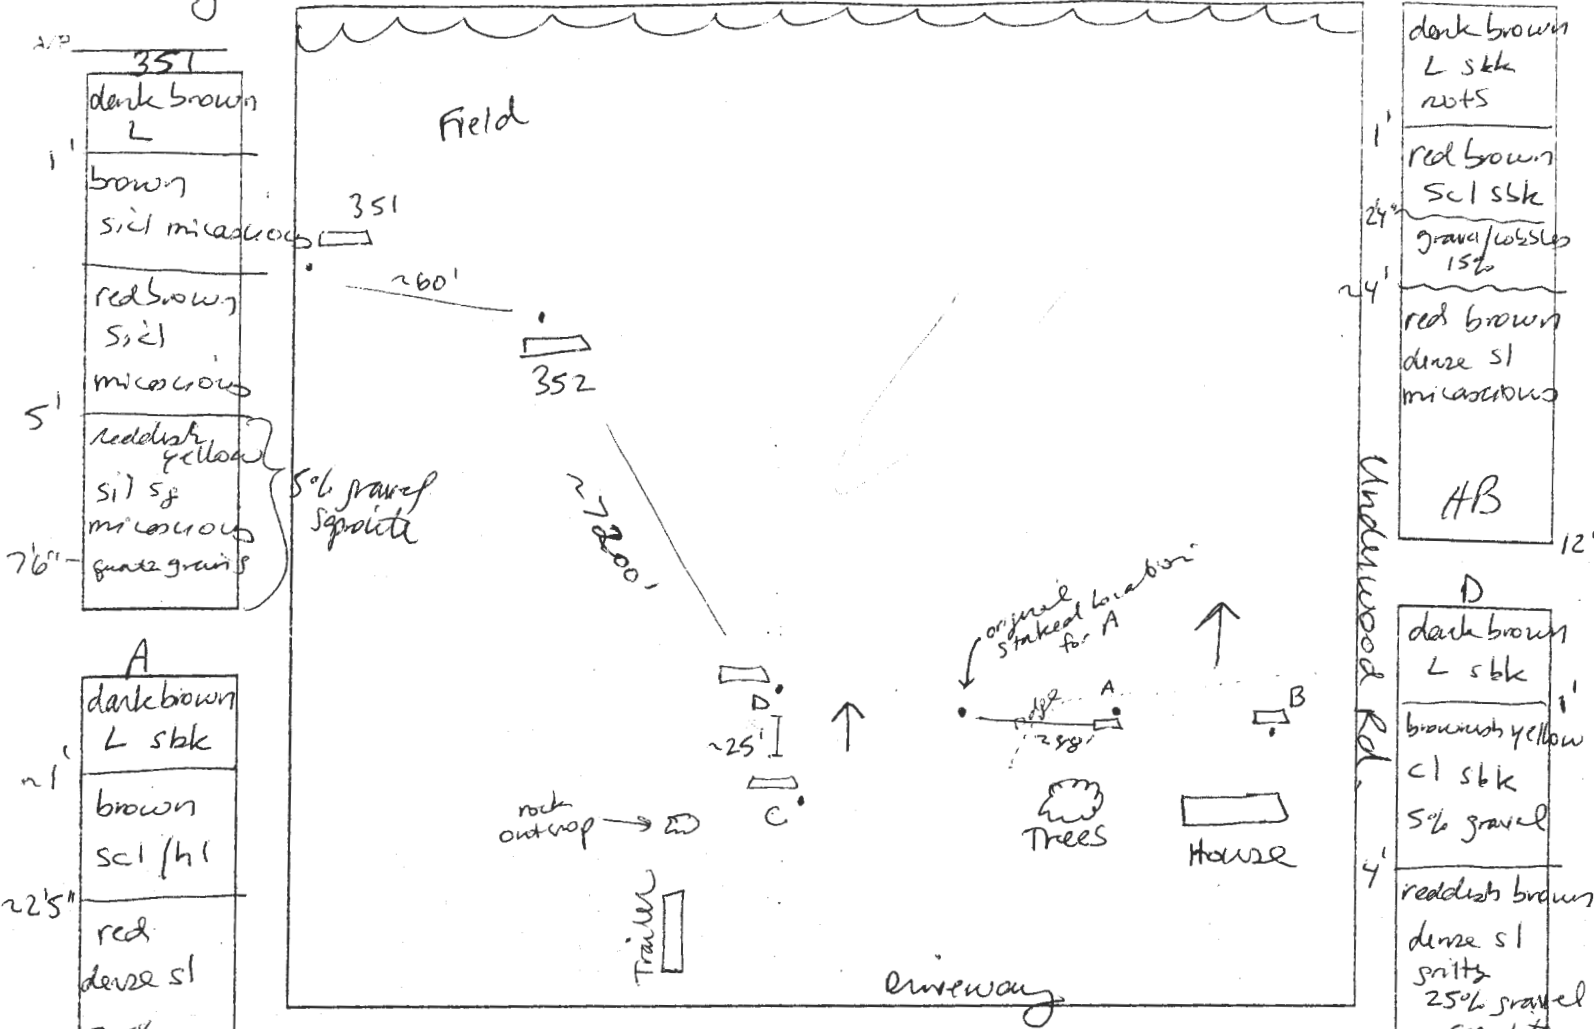 351
dark brown
L
1'
brown
sicl micascious
red brown
sicl
micascious
5'
reddish
yellow
sil sg
micascious
7'6"
quartz grains
5% gravel
A
dark brown
L sbk
~1'
brown
scl /hl
~2'5"
red
dense sl
Field
351
~60'
352
~7200'
original
staked location
for A
D
~25'
C
rock
outcrop
Trailer
edge
A
B
Trees
House
Driveway
Underwood Rd.
dark brown
L sbk
roots
1'
red brown
Scl sbk
2'4"
gravel/cobbles
15%
~4'
red brown
dense sl
micascious
AB
12'
D
dark brown
L sbk
1'
brownish yellow
cl sbk
5% gravel
4'
reddish brown
dense sl
gritty
25% gravel